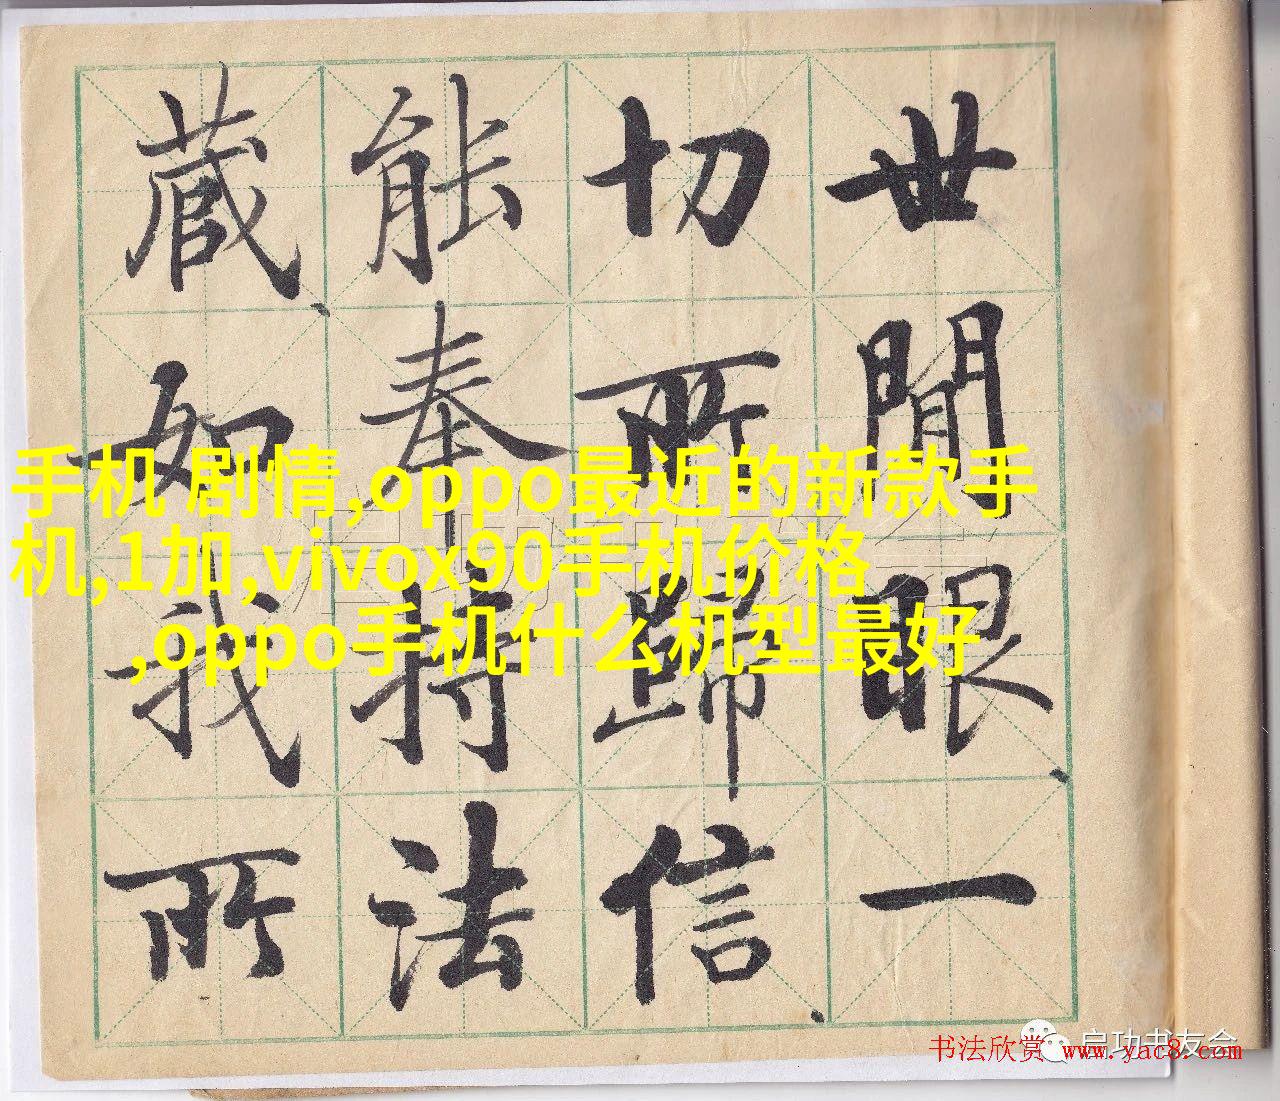 世閒眼一
切所歸信
能奉持法
藏如我所
手机 剧情,oppo最近的新款手
机,1加,vivox90手机价格
,oppo手机什么机型最好
启功书友会
书法欣赏 www.yac8.com
启功书友会